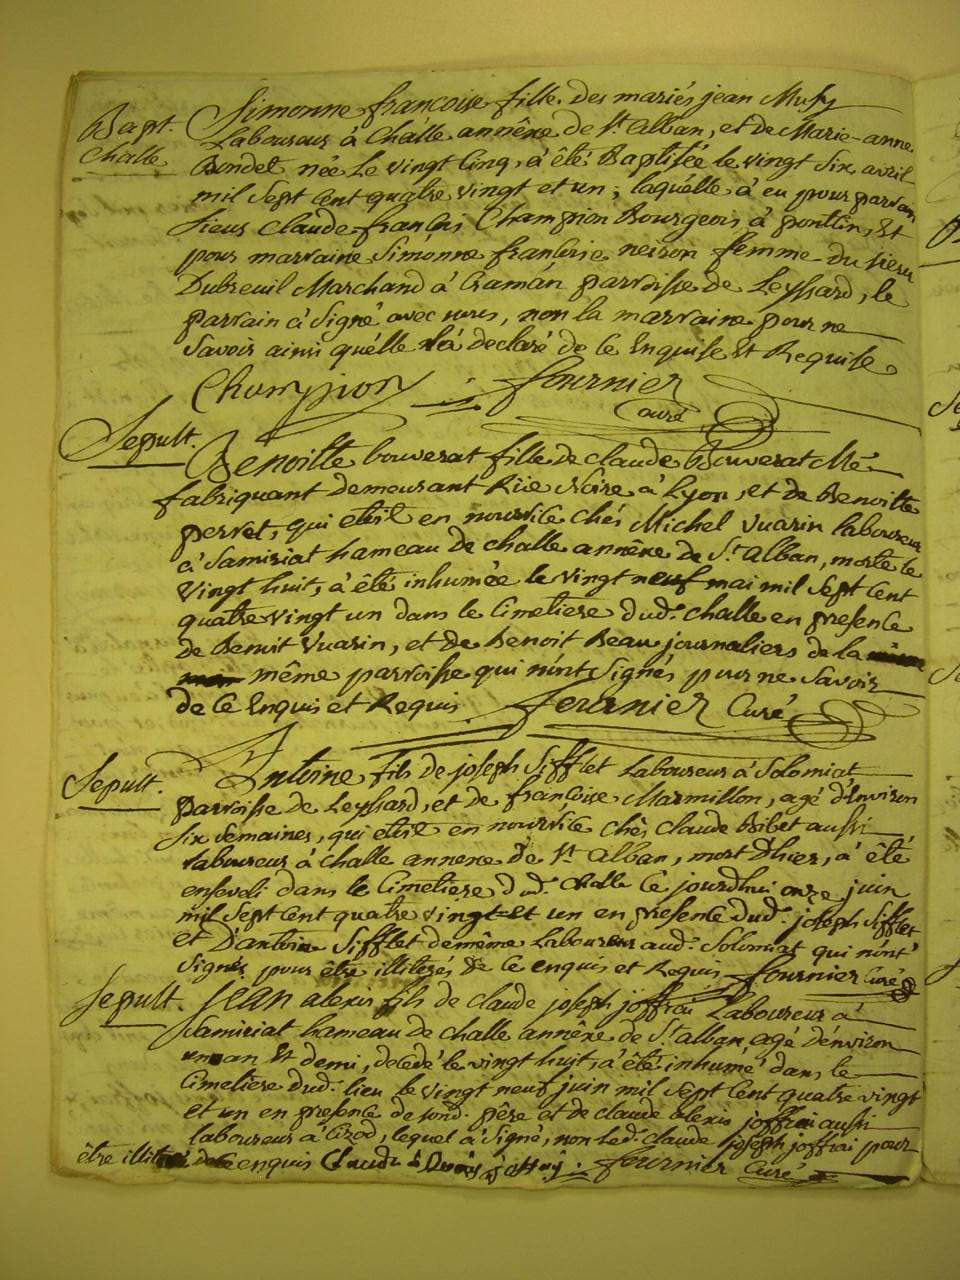 Bapt.
Challe
Simonne françoise fille des mariés jean Musy
Laboureur à Challe annêxe de St. alban, et de Marie-anne
Bondet née Le vingt Cinq, à êté Baptisée le vingt Six avril
mil Sept Cent quatre vingt et un, laquélle à eu pour parrain
Sieur Claude françois Champion Bourgeois à pontin, Et
pour marraine Simonne françoise neiron femme du Sieur
Dubreuil Marchand à Craman parroisse de Leyssard, le
parrain à Signé avec nous, non la marraine pour ne
Savoir ainsi quélle l'à declaré de Ce Enquise Et Requise
Champion Fournier
curé
Sepult.
Benoitte bouverat fille de Claude Bouverat Me
fabriquant demeurant Rüe Noire à Lyon, et de Benoitte
perret, qui etoit en nourrice chés Michel Vuarin laboureur
à Samiriat hameau de challe annêxe de St. alban, morte le
Vingt huit, à êté inhumée le vingt neuf mai mil Sept Cent
quatre vingt un dans le Cimetiere dud. challe en presence
de Benoit Vuarin, et de Benoit Beau journaliers de la
même parroisse qui n'ont Signés pour ne Savoir
de Ce Enquis et Requis Fournier Curé
Sepult.
Antoine fils de joseph Sifflet Laboureur à Solomiat
parroisse de Leyssard, et de françoise Marmillon, agé d'Environ
Six Semaines, qui etoit en nourrice chès Claude Bibet aussi
laboureur à challe annexe de St. alban, mort D'hier, à êté
enseveli dans le Cimetiere dud. Challe Ce jourdhui onze juin
mil Sept Cent quatre vingt et un en presence dud. joseph Sifflet
et D'antoine Sifflet demême Laboureur aud. Solomiat qui n'ont
Signés pour être illiterés de Ce enquis et Requis fournier Curé
Sepult.
Jean alexis fils de Claude joseph joffrai Laboureur à
Samiriat hameau de Challe annêxe de St. alban, agé d'énviron
un an Et demi, decedé le vingt huit, à êté inhumé dans le
Cimetiere dud. lieu le vingt neuf juin mil Sept Cent quatre vingt
et un en presence de sond. père et de Claude alexis joffrai aussi
laboureur à Cizod, lequel à Signé, non led. Claude joseph joffrai pour
être illiteré de Ce enquis Claude fournier Curé